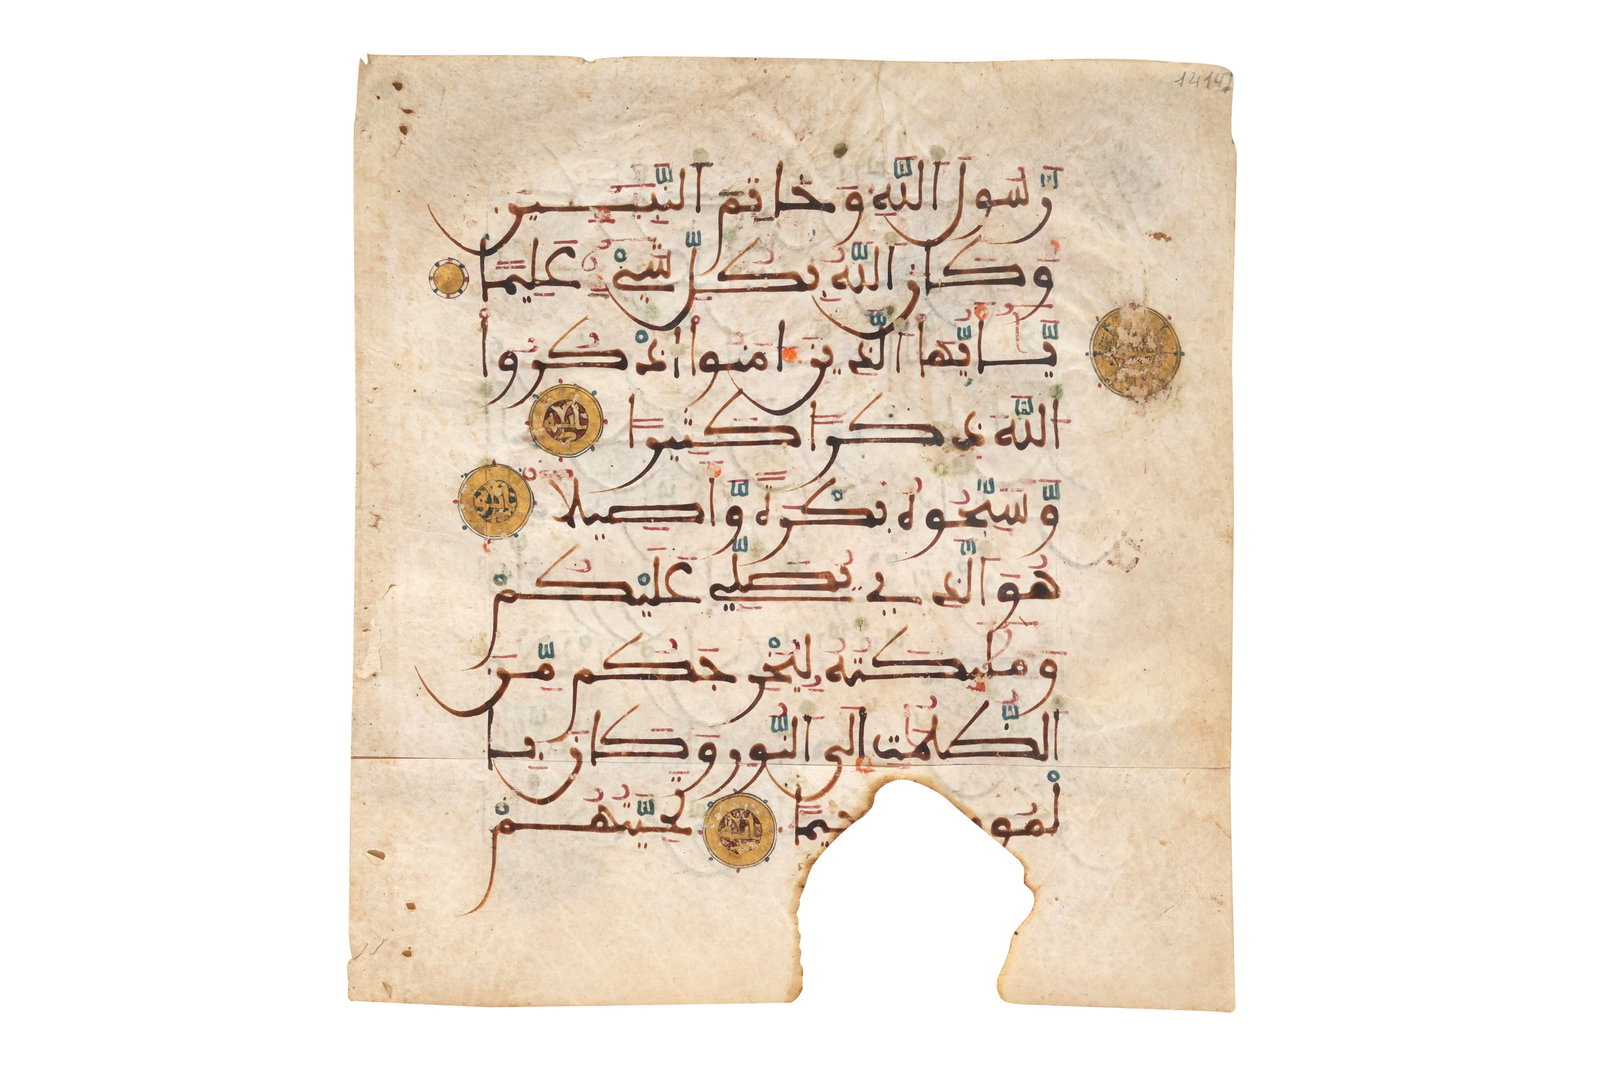 رَّسُولَ اللَّهِ وَخَاتِمَ النَّبِيِّينَ
وَكَانَ اللَّهُ بِكُلِّ شَيْءٍ عَلِيمًا
يَٰأَيُّهَا الَّذِينَ ءَامَنُوا اذْكُرُوا
اللَّهَ ذِكْرًا كَثِيرًا
وَسَبِّحُوهُ بُكْرَةً وَّأَصِيلًا
هُوَ الَّذِي يُصَلِّي عَلَيْكُمْ
وَمَلَٰئِكَتُهُ لِيُخْرِجَكُم مِّنَ
الظُّلُمَٰتِ إِلَى النُّورِ وَكَانَ بِا
لْمُو حِيمًا تَحِيَّتُهُمْ
1414